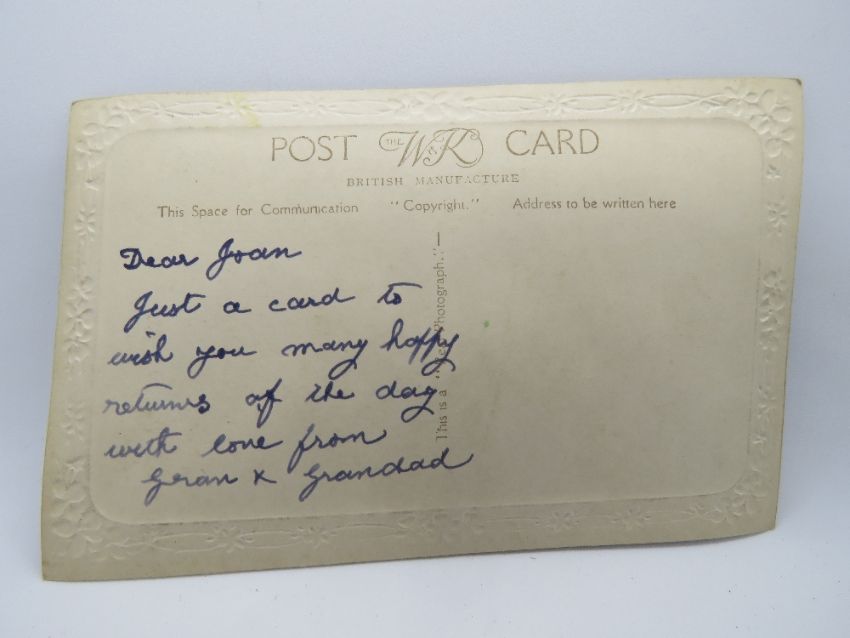 POST THE W&K CARD
BRITISH MANUFACTURE
This Space for Communication "Copyright." Address to be written here
Dear Joan
Just a card to
wish you many happy
returns of the day
with love from
Gran & Grandad
This is a "Real Photograph."